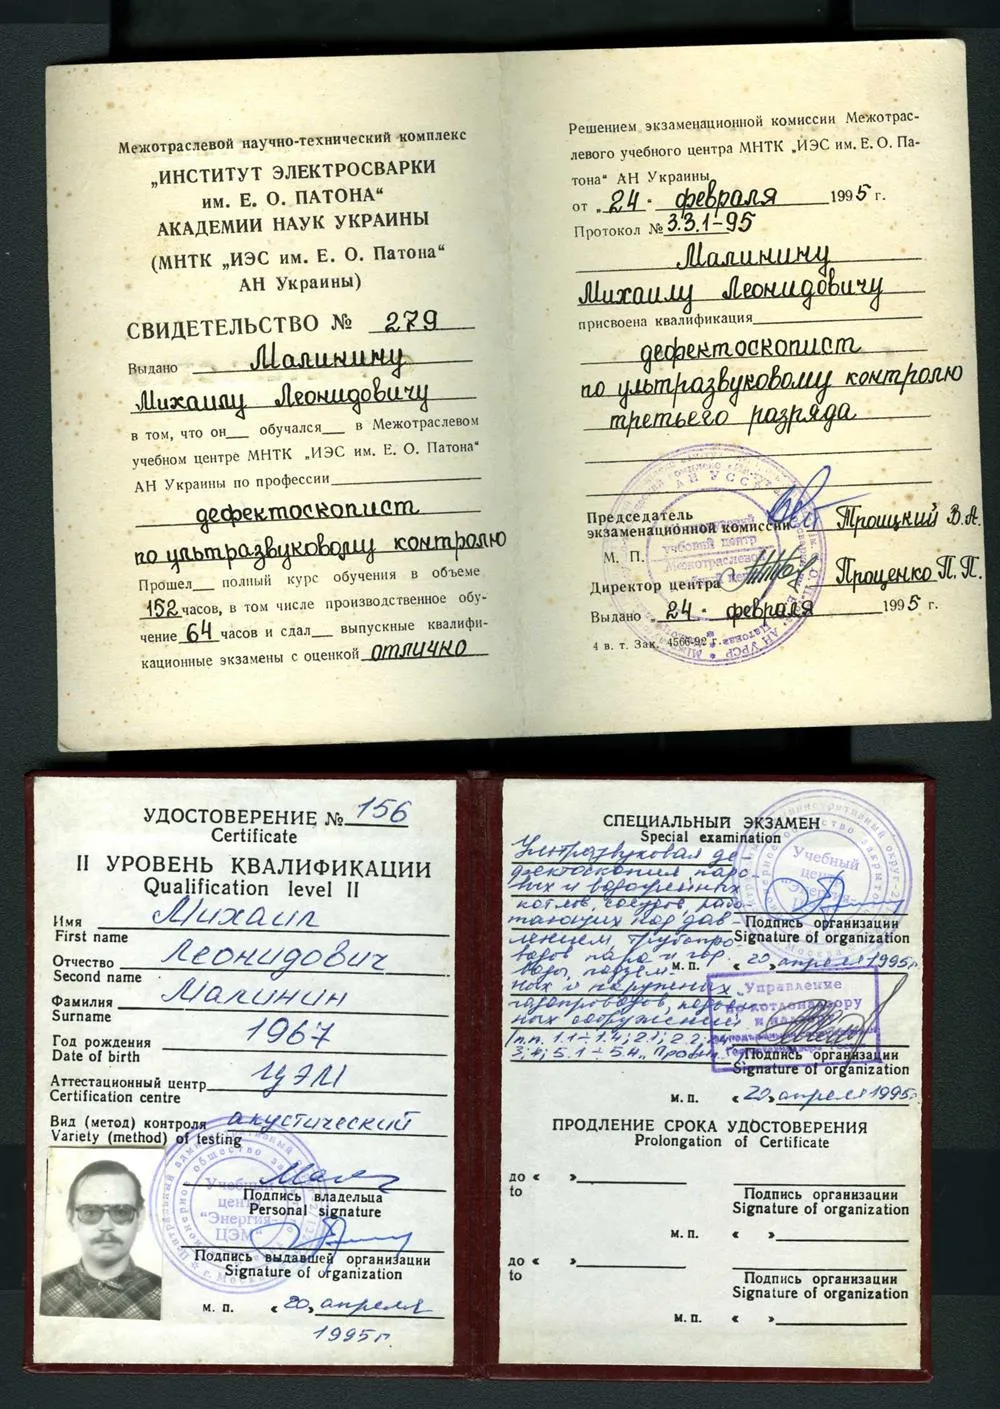 Межотраслевой научно-технический комплекс
„ИНСТИТУТ ЭЛЕКТРОСВАРКИ
им. Е. О. ПАТОНА“
АКАДЕМИИ НАУК УКРАИНЫ
(МНТК „ИЭС им. Е. О. Патона“
АН Украины)
СВИДЕТЕЛЬСТВО № 279
Выдано Малинину
Михаилу Леонидовичу
в том, что он__ обучался__ в Межотраслевом
учебном центре МНТК „ИЭС им. Е. О. Патона“
АН Украины по профессии
дефектоскопист
по ультразвуковому контролю
Прошел__ полный курс обучения в объеме
152 часов, в том числе производственное обу-
чение 64 часов и сдал__ выпускные квалифи-
кационные экзамены с оценкой отлично
Решением экзаменационной комиссии Межотрас-
левого учебного центра МНТК „ИЭС им. Е. О. Па-
тона“ АН Украины
от „24“ февраля 1995 г.
Протокол № 3.3.1-95
Малинину
Михаилу Леонидовичу
присвоена квалификация
дефектоскопист
по ультразвуковому контролю
третьего разряда
Председатель
экзаменационной комиссии Троицкий В.А.
М. П.
Директор центра Проценко П.П.
Выдано „24“ февраля 1995 г.
4 в. т. Зак. 4566-92 г.
УДОСТОВЕРЕНИЕ № 156
Certificate
II УРОВЕНЬ КВАЛИФИКАЦИИ
Qualification level II
Имя Михаил
First name
Отчество Леонидович
Second name
Фамилия Малинин
Surname
Год рождения 1967
Date of birth
Аттестационный центр ЦЭМ
Certification centre
Вид (метод) контроля акустический
Variety (method) of testing
Учебный
центр
“Энергия-
ЦЭМ”
Подпись владельца
Personal signature
Подпись выдавшей организации
Signature of organization
м. п. « 20 » апреля
1995 г.
СПЕЦИАЛЬНЫЙ ЭКЗАМЕН
Special examination
Ультразвуковая де-
фектоскопия паро-
вых и водогрейных
котлов, сосудов, рабо-
тающих под дав-
лением, трубопро-
водов пара и гор.
воды, подзем-
ных и наружных
газопроводов, подъем-
ных сооружений
Учебный
Подпись организации
Signature of organization
м. п. « 20 » апреля 1995 г.
Управление
по котлонадзору
Подпись организации
Signature of organization
м. п. « 20 » апреля 1995 г.
ПРОДЛЕНИЕ СРОКА УДОСТОВЕРЕНИЯ
Prolongation of Certificate
до « »
to
Подпись организации
Signature of organization
м. п. « »
до « »
to
Подпись организации
Signature of organization
м. п. « »